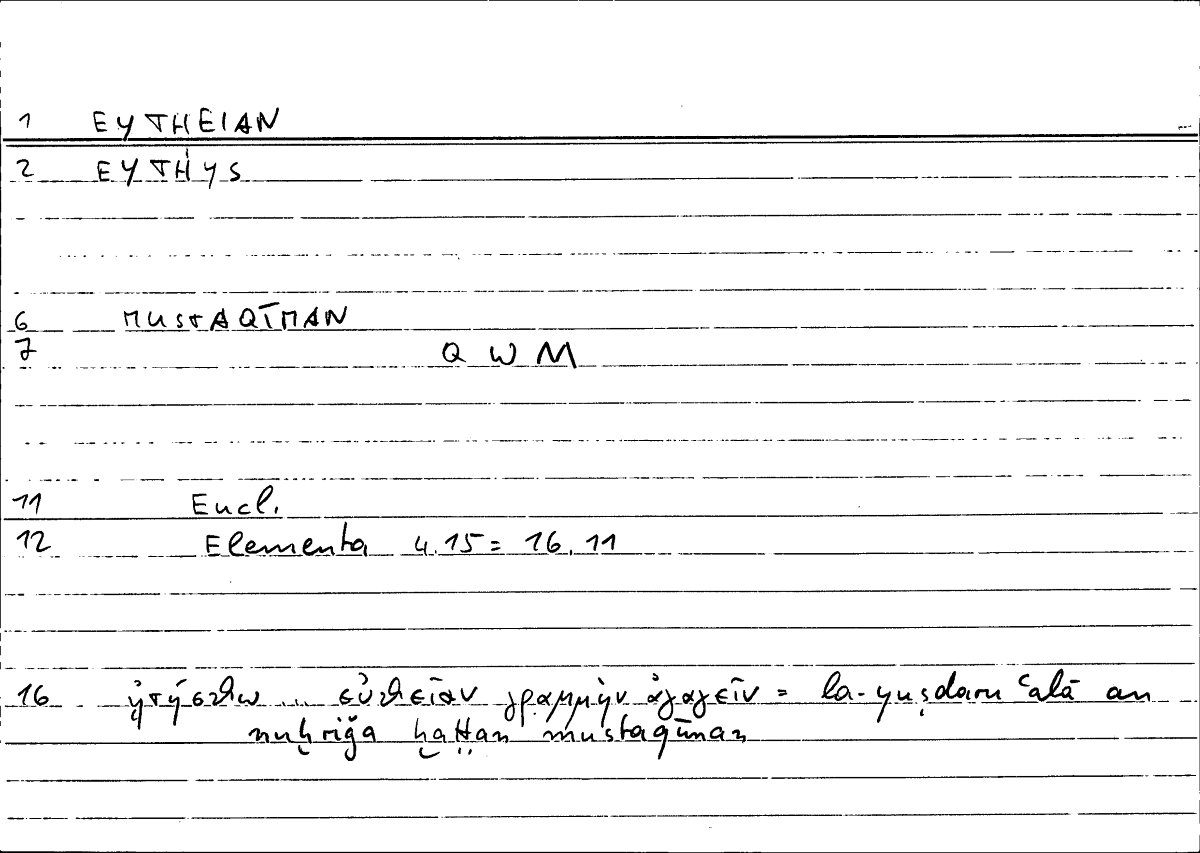 1 EYTHEIAN
2 EYTHYS
6 MUSTAQĪMAN
7 Q W M
11 Eucl.
12 Elementa 4.15 = 16.11
16 ᾐτήσθω ... εὐθεῖαν γραμμὴν ἀγαγεῖν = la-yuṣdaru ʿalā an
nuḫriǧa ḫaṭṭan mustaqīman